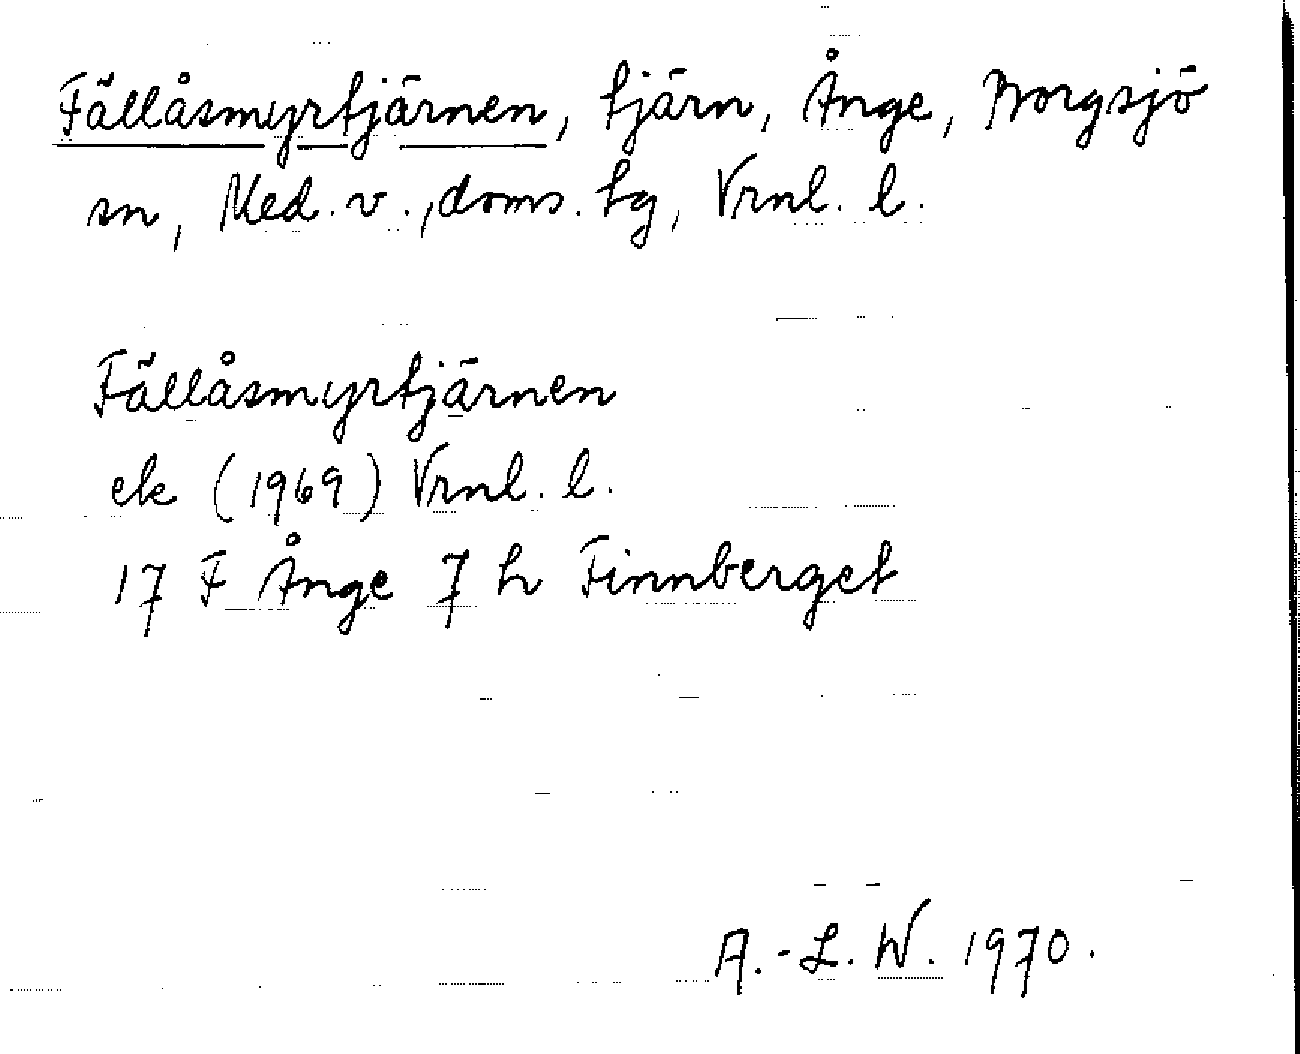 Fällåsmyrtjärnen, tjärn, Ånge, Borgsjö
sn, Med. v., doms. hg, Vrnl. l.
Fällåsmyrtjärnen
ek (1969) Vrnl. l.
17 F Ånge 7 h Finnberget
A.-L. W. 1970.